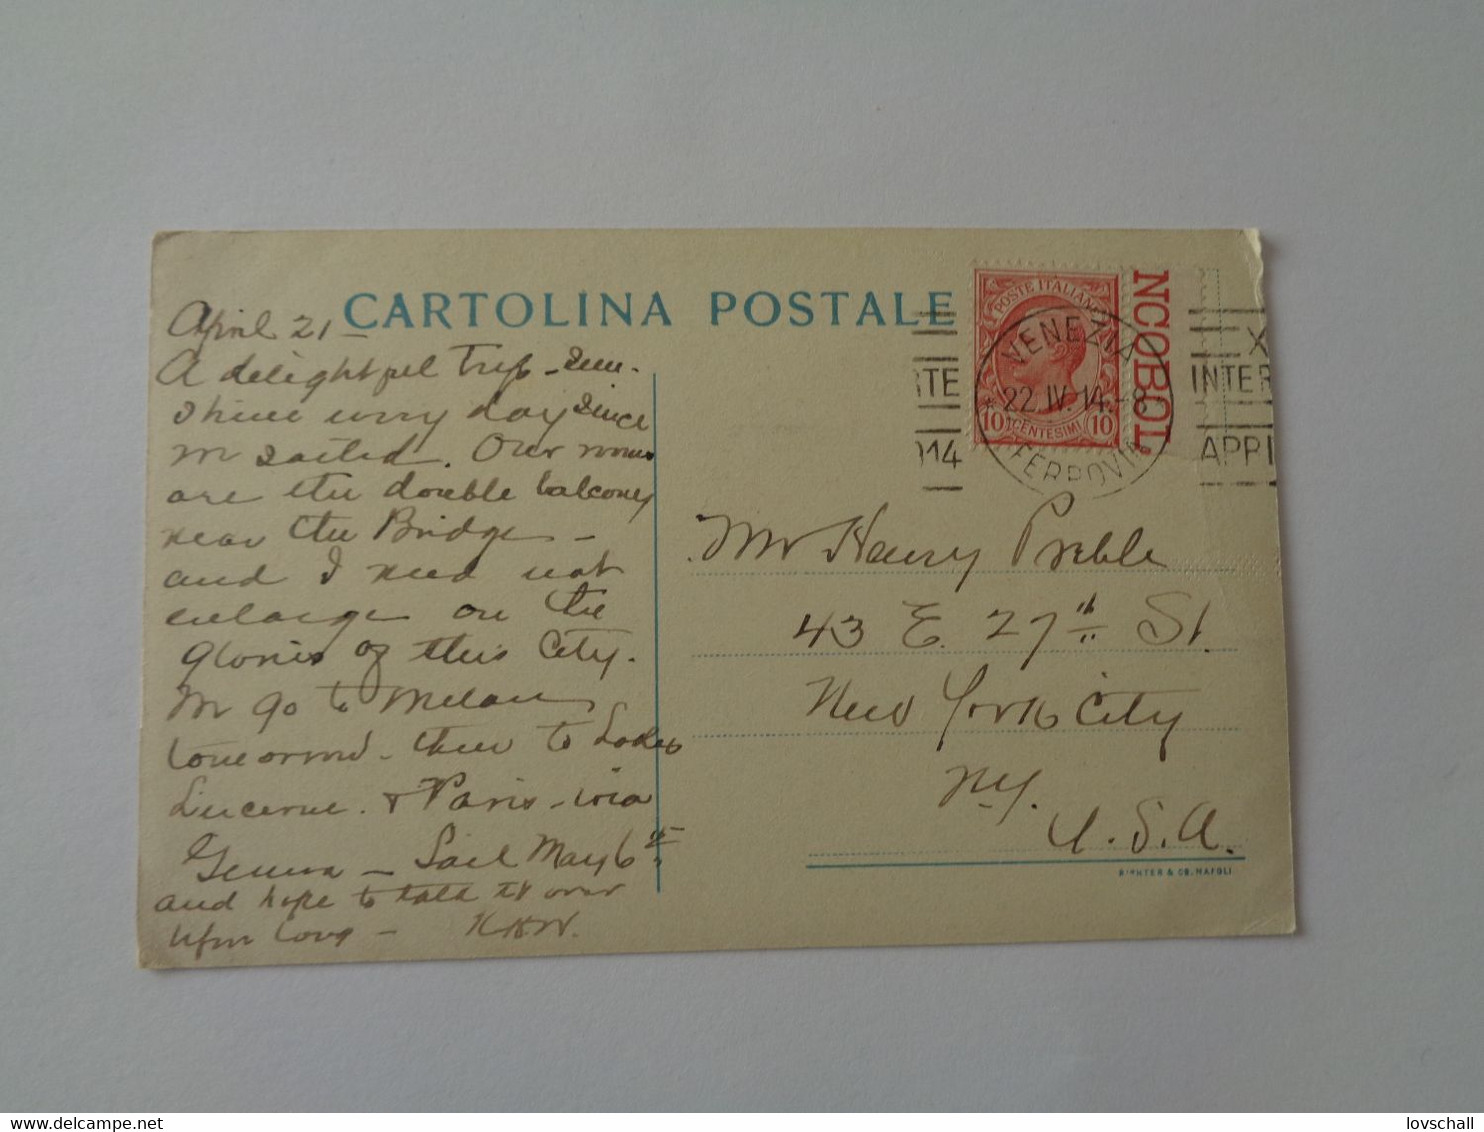 CARTOLINA POSTALE
April 21
A delightful trip - sun-
shine every day since
we sailed. Our rooms
are the double balcony
near the Bridge -
and I need not
enlarge on the
glories of this City.
We go to Milan
tomorrow - then to Lakes
Lucerne & Paris - via
Geneva - Sail May 6th
and hope to talk it over
before long - 
POSTE ITALIANE
10 CENTESIMI 10
NCOBOL
VENEZIA
22.IV.14.-8
FERROVIA
RTE
914
X
INTER
APRI
Mr Henry Preble
43 E. 27th St.
New York City
N.Y.
U.S.A.
RICHTER & CO. NAPOLI
lovschall